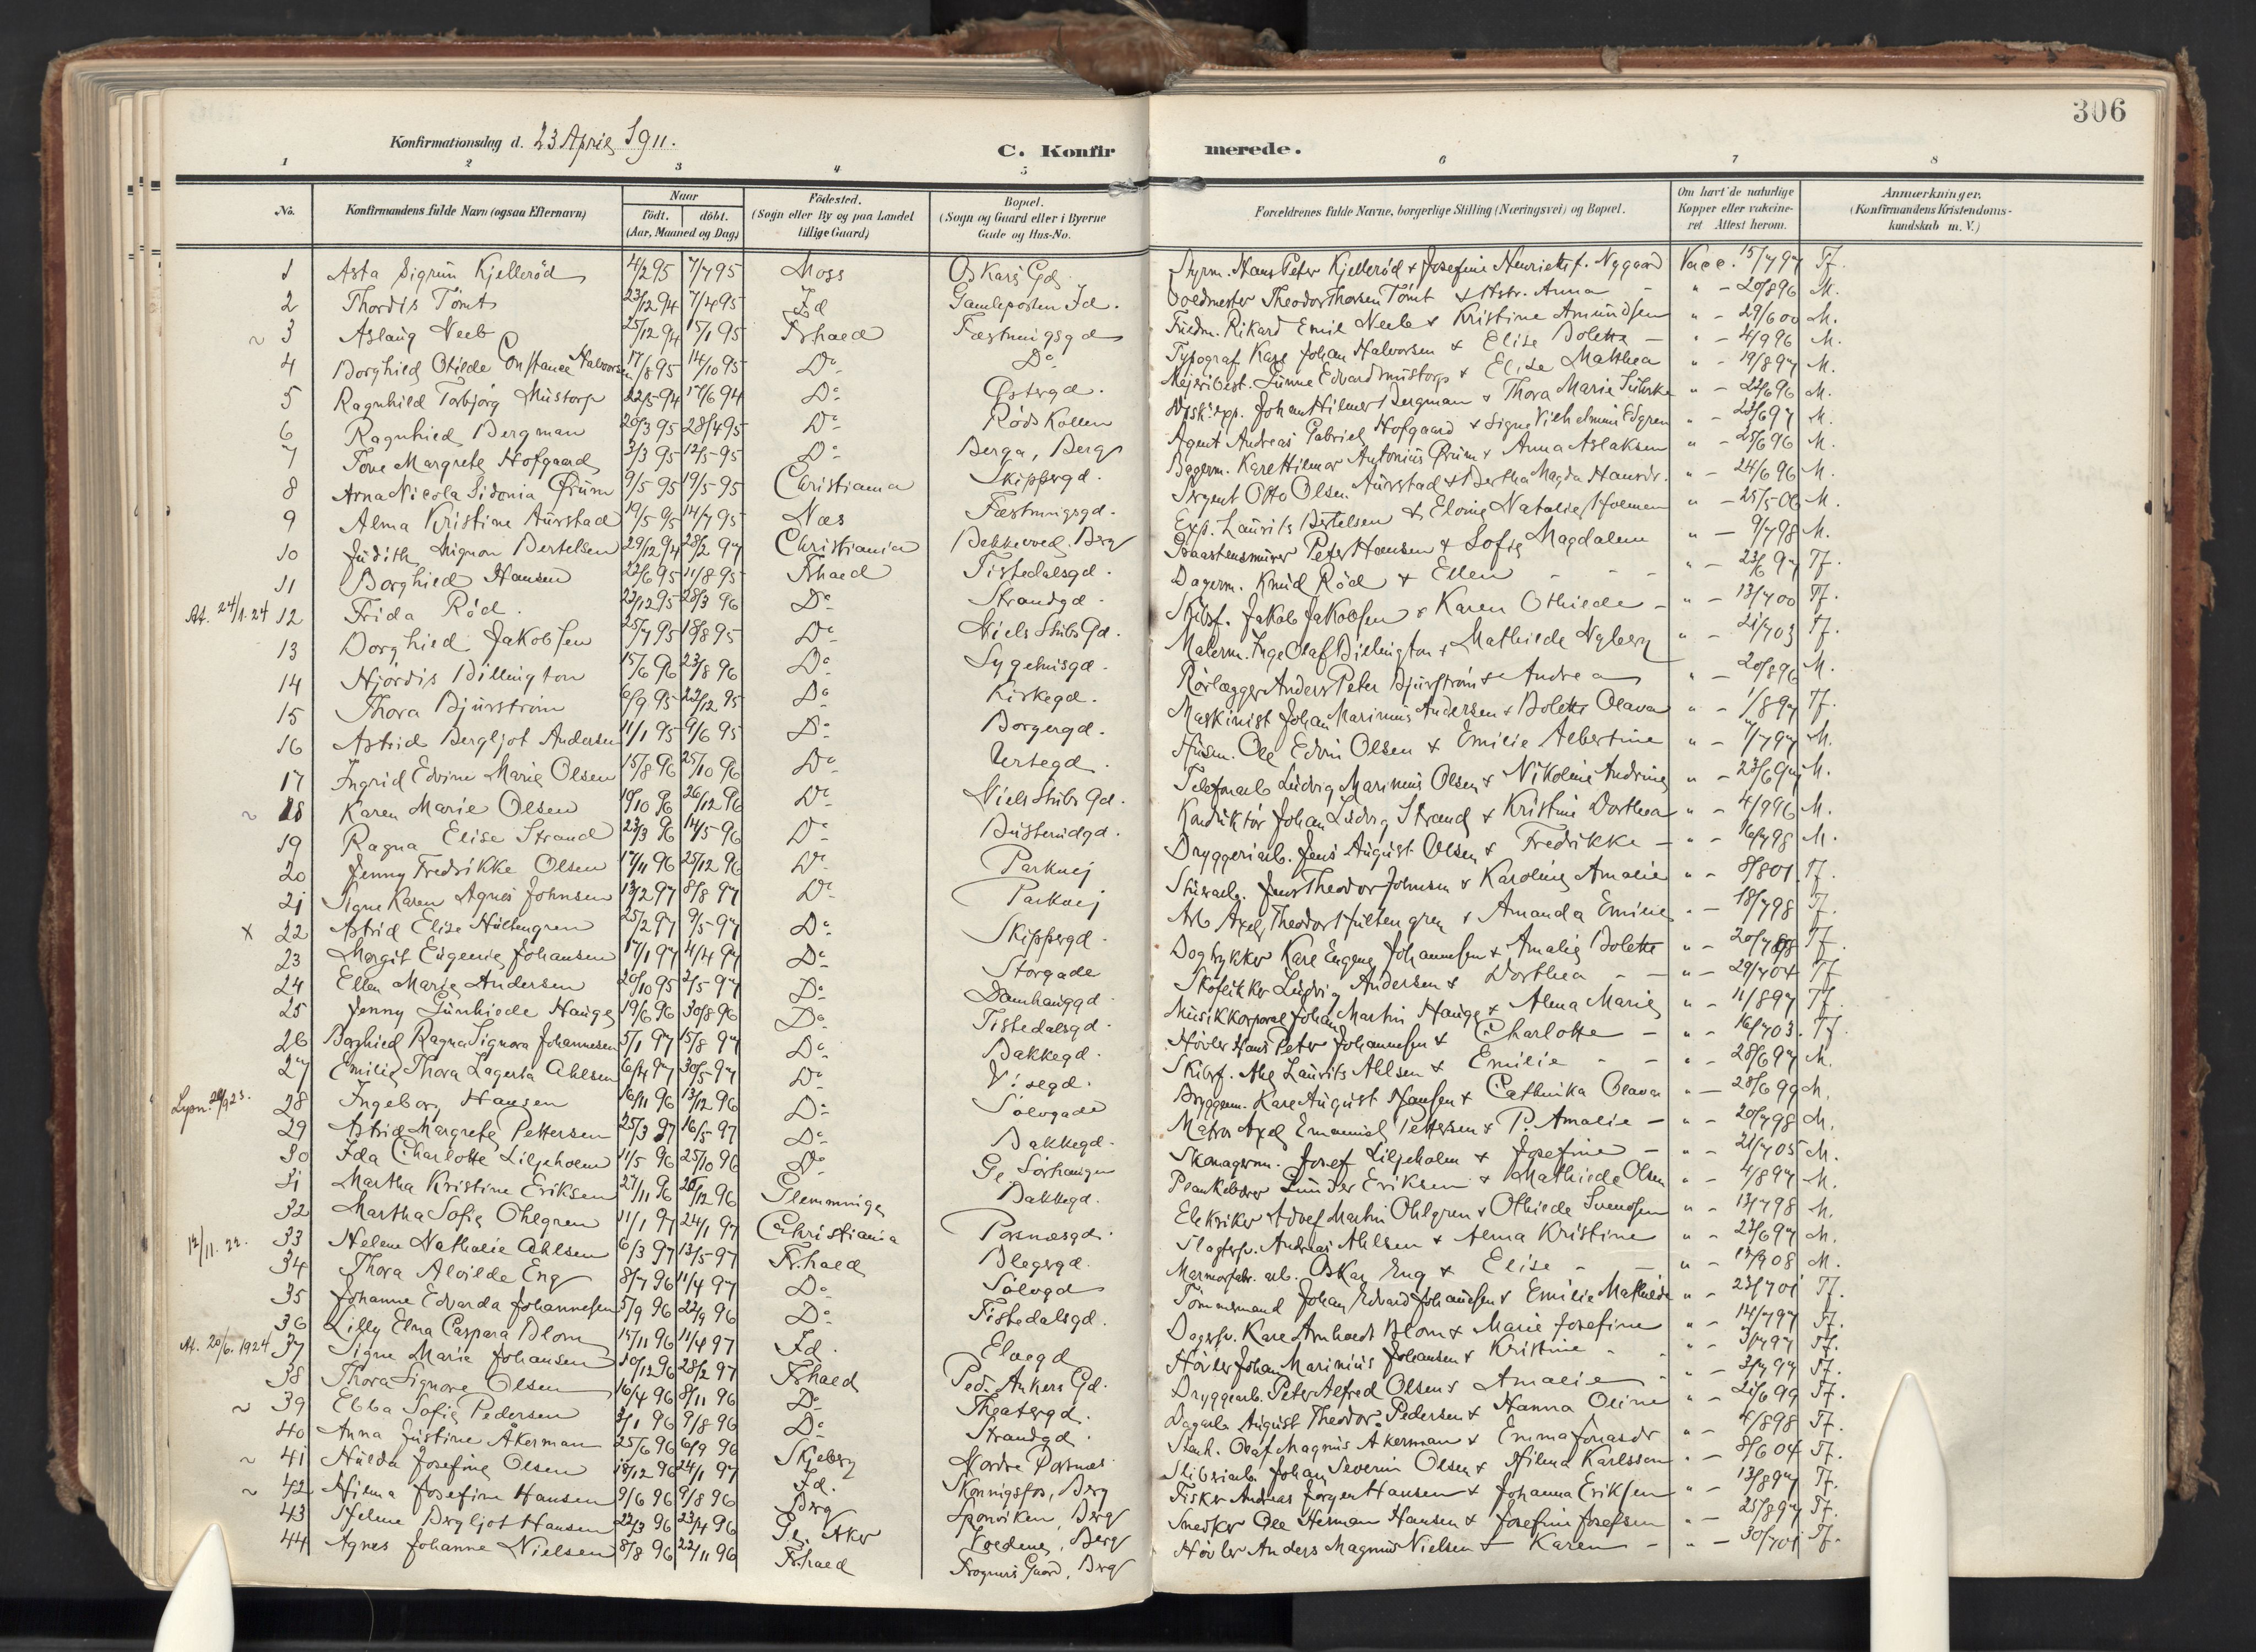 306
Konfirmationsdag d. 23 April 1911.
C. Konfirmerede.
1 2 3 4 5 6 7 8
No.
Konfirmandens fulde Navn (ogsaa Efternavn)
Naar
födt. döbt.
(Aar, Maaned og Dag)
Födested.
(Sogn eller By og paa Landet
tillige Gaard)
Bopæl.
(Sogn og Gaard eller i Byerne
Gade og Hus-No.
Forældrenes fulde Navne, borgerlige Stilling (Næringsvei) og Bopæl.
Om havt de naturlige
Kopper eller vakcine-
ret Attest herom.
Anmærkninger.
(Konfirmandens Kristendoms-
kundskab m. V.)
1 Asta Sigrun Kjellerød 4/2 95 7/7 95 Moss Oskars Gd. Styrm. Hans Peter Kjellerød & Josefine Henriette f. Nygaard Vacc. 15/7 97 Tf.
2 Thordis Tømt 23/12 94 7/4 95 Id Gamleposten Id. Theodor Thorsen Tømt & Hstr. Anna " - 20/8 96 M.
~ 3 Aslaug Neeb 25/12 94 15/1 95 Frhald Fæstningsgd Rikard Emil Neeb & Kristine Amundsen " - 29/6 00 M.
4 Borghild Otilde Constance Halvorsen 17/8 95 14/10 95 Do Do Typograf Karl Johan Halvorsen & Elise Bolette - " - 4/9 96 M.
5 Ragnhild Torbjørg Mustorp 22/5 94 17/6 94 Do Østergd. Mejeribest. Gunne Edvard Mustorp & Elise Mathea " - 19/8 97 M.
6 Ragnhild Bergman 20/3 95 28/4 95 Do Rødskollen Johan Hilmer Bergman & Thora Marie " - 22/6 96 M.
7 Tove Margrete Hofgaard 3/3 95 12/5 95 Do Berga, Berg Agent Andreas Gabriel Hofgaard & Signe Vilhelmine Edgren " - 23/6 97 M.
8 Arna Nicola Sidonia Ørum 9/5 95 19/5 95 Christiania Skippergd. Bagerm. Karl Hilmar Antonius Ørum & Anna Aslaksen " - 25/6 96 M.
9 Alma Kristine Aurstad 19/5 95 14/7 95 Næs Fæstningsgd. Sergent Otto Olsen Aurstad & Bertha Magda Hansdr. " - 24/6 96 M.
10 Judith Mignon Bertelsen 29/12 94 28/2 97 Christiania Bakkevold, Berg Exp. Laurits Bertelsen & Elvine Natalie Holmen " - 25/5 06 M.
11 Borghild Hansen 22/6 95 11/8 95 Frhald Tistedalsgd. Graastensmurer Peter Hansen & Sofie Magdalene " - 9/7 98 M.
At. 24/1.24 12 Frida Rød. 22/12 95 28/3 96 Do Strandgd. Dagerm. Knud Rød & Ellen - - - " - 23/6 97 Tf.
13 Borghild Jakobsen 25/7 95 18/8 95 Do Niels Stubs Gd. Skibsf. Jakob Jakobsen & Karen Othilde - " - 13/7 00 Tf.
14 Hjørdis Billington 15/6 96 23/8 96 Do Sygehusgd. Malerm. Inge Olaf Billington & Mathilde Nyberg " - 21/7 03 Tf.
15 Thora Bjurstrøm 6/9 95 22/12 95 Do Kirkegd. Rørlægger Anders Peter Bjurstrøm & Andrea " - 20/8 96 M.
16 Astrid Bergljot Andersen 11/1 95 9/6 95 Do Borgergd. Maskinist Johan Marinius Andersen & Bolette Olava " - 1/8 97 Tf.
17 Ingrid Edvine Marie Olsen 15/8 96 25/10 96 Do Urtegd. Husm. Ole Edvin Olsen & Emilie Albertine " - 1/7 97 M.
~ 18 Karen Marie Olsen 19/10 96 26/12 96 Do Niels Stubs Gd. Telefonarb. Ludvig Marinius Olsen & Nikoline Andrine " - 23/6 97 M.
19 Ragna Elise Strand 23/3 96 14/5 96 Do Busterudgd. Konduktør Johan Ludvig Strand & Kristine Dorthea " - 4/9 96 M.
20 Jenny Fredrikke Olsen 17/11 96 25/12 96 Do Parkvej Bryggeriarb. Jens August Olsen & Fredrikke - " - 16/7 98 M.
21 Signe Karen Agnes Johnsen 13/2 97 8/8 97 Do Parkvej Jens Theodor Johnsen & Karoline Amalie " - 8/8 01 Tf.
x 22 Astrid Elise Hultengren 25/2 97 9/5 97 Do Skippergd. Arb Axel Theodor Hultengren & Amanda Emilie " - 18/7 98 Tf.
23 Margit Eugenie Johansen 17/1 97 4/4 97 Do Storgade Bogtykker Karl Eugene Johannesen & Amalie Bolette " - 20/7 98 Tf.
24 Ellen Marie Andersen 20/10 95 2/5 97 Do Damhauggd. Skoflikker Ludvig Andersen & Dorthea - - " - 29/7 04 Tf
25 Jenny Gunhilde Hauge 19/6 96 30/8 96 Do Tistedalsgd. Musikkorporal Johan Martin Hauge & Alma Marie " - 11/8 97 Tf.
26 Borghild Ragna Signora Johannesen 5/1 97 15/8 97 Do Bakkegd. Høvler Hans Peter Johannesen & Charlotte - " - 16/7 03. Tf.
27 Emilie Thora Lagerta Ahlsen 6/4 97 30/5 97 Do Visegd. Skibsf. Laurits Ahlsen & Emilie - - " - 28/6 97 M.
28 Ingeborg Hansen 16/11 96 13/12 96 Do Sølvgade Bryggem. Karl August Hansen & Cathrika Olava " - 28/6 99 M.
29 Astrid Margrete Pettersen 25/3 97 16/5 97 Do Bakkegd. Matros Axel Emanuel Pettersen & P. Amalie - " - 20/7 98 M.
30 Ida Charlotte Liljeholm 11/5 96 25/10 96 Do Gl. Sørhaugen Skomagerm. Josef Liljeholm & Josefine - " - 21/7 05 M.
31 Martha Kristine Eriksen 27/11 96 26/12 96 Glemminge Bakkegd. Plankebærer Gunder Eriksen & Mathilde Olsen " - 4/8 97 M.
32 Martha Sofie Ohlgren 11/1 97 24/1 97 Christiania Porsnæsgd. Elektriker Adolf Martin Ohlgren & Othilde Svendsen " - 13/7 98 M.
12/11. 22. 33 Helene Nathalie Ahlsen 6/3 97 13/5 97 Fr.hald Blegergd. Slagtersv. Andreas Ahlsen & Alma Kristine " - 23/6 97 M.
34 Thora Alvilde Eng 8/7 96 11/4 97 Do Sølvgd Marmorfabr. arb. Oskar Eng & Elise - - " - 13/9 08 M.
35 Johanne Edvarda Johannesen 5/9 96 22/9 96 Do Tistedalsgd. Tømmermand Johan Edvard Johannesen & Emilie Mathilde " - 23/7 01 Tf.
36 Lilly Elna Caspara Blom 15/11 96 11/4 97 Id. Elvegd Karl Arnholdt Blom & Marie Josefine " - 14/7 97 Tf.
At. 20/6. 1924 37 Signe Marie Johansen 10/12 96 28/2 97 Frhald Ped. Ankers Gd. Høvler Johan Marinius Johansen & Kristine - " - 3/7 97 Tf.
38 Thora Signore Olsen 16/4 96 8/11 96 Do Theatergd. Bryggearb. Peter Alfred Olsen & Amalie - " - 3/7 97 Tf.
~ 39 Ebba Sofie Pedersen 3/1 96 9/8 96 Do Strandgd. Dagarb. August Theodor Pedersen & Hanna Oline " - 21/6 99 Tf.
40 Anna Justine Åkerman 25/6 96 6/9 96 Skjeberg Nordre Porsnæs Olaf Magnus Akerman & Emma Jonasdr " - 4/8 98 Tf.
~ 41 Hulda Josefine Olsen 18/12 96 24/1 97 Id. Skonnigsfos, Berg Sliberiarb. Johan Severin Olsen & Hilma Karlsson " - 8/6 04 Tf.
~ 42 Hilma Josefine Hansen 9/6 96 9/8 96 Berg Sponviken, Berg Fisker Andreas Jørgen Hansen & Johanna Eriksen " - 13/8 97 Tf.
43 Helene Bergljot Hansen 22/3 96 23/4 96 Gl. Aker Voldene, Berg Snedker Ole Herman Hansen & Josefine Josefsen " - 25/8 97 Tf.
44 Agnes Johanne Nielsen 8/8 96 22/11 96 Fr.hald Frogners Gaard, Berg Høvler Anders Magnus Nielsen & Karen - " - 30/7 01 Tf.